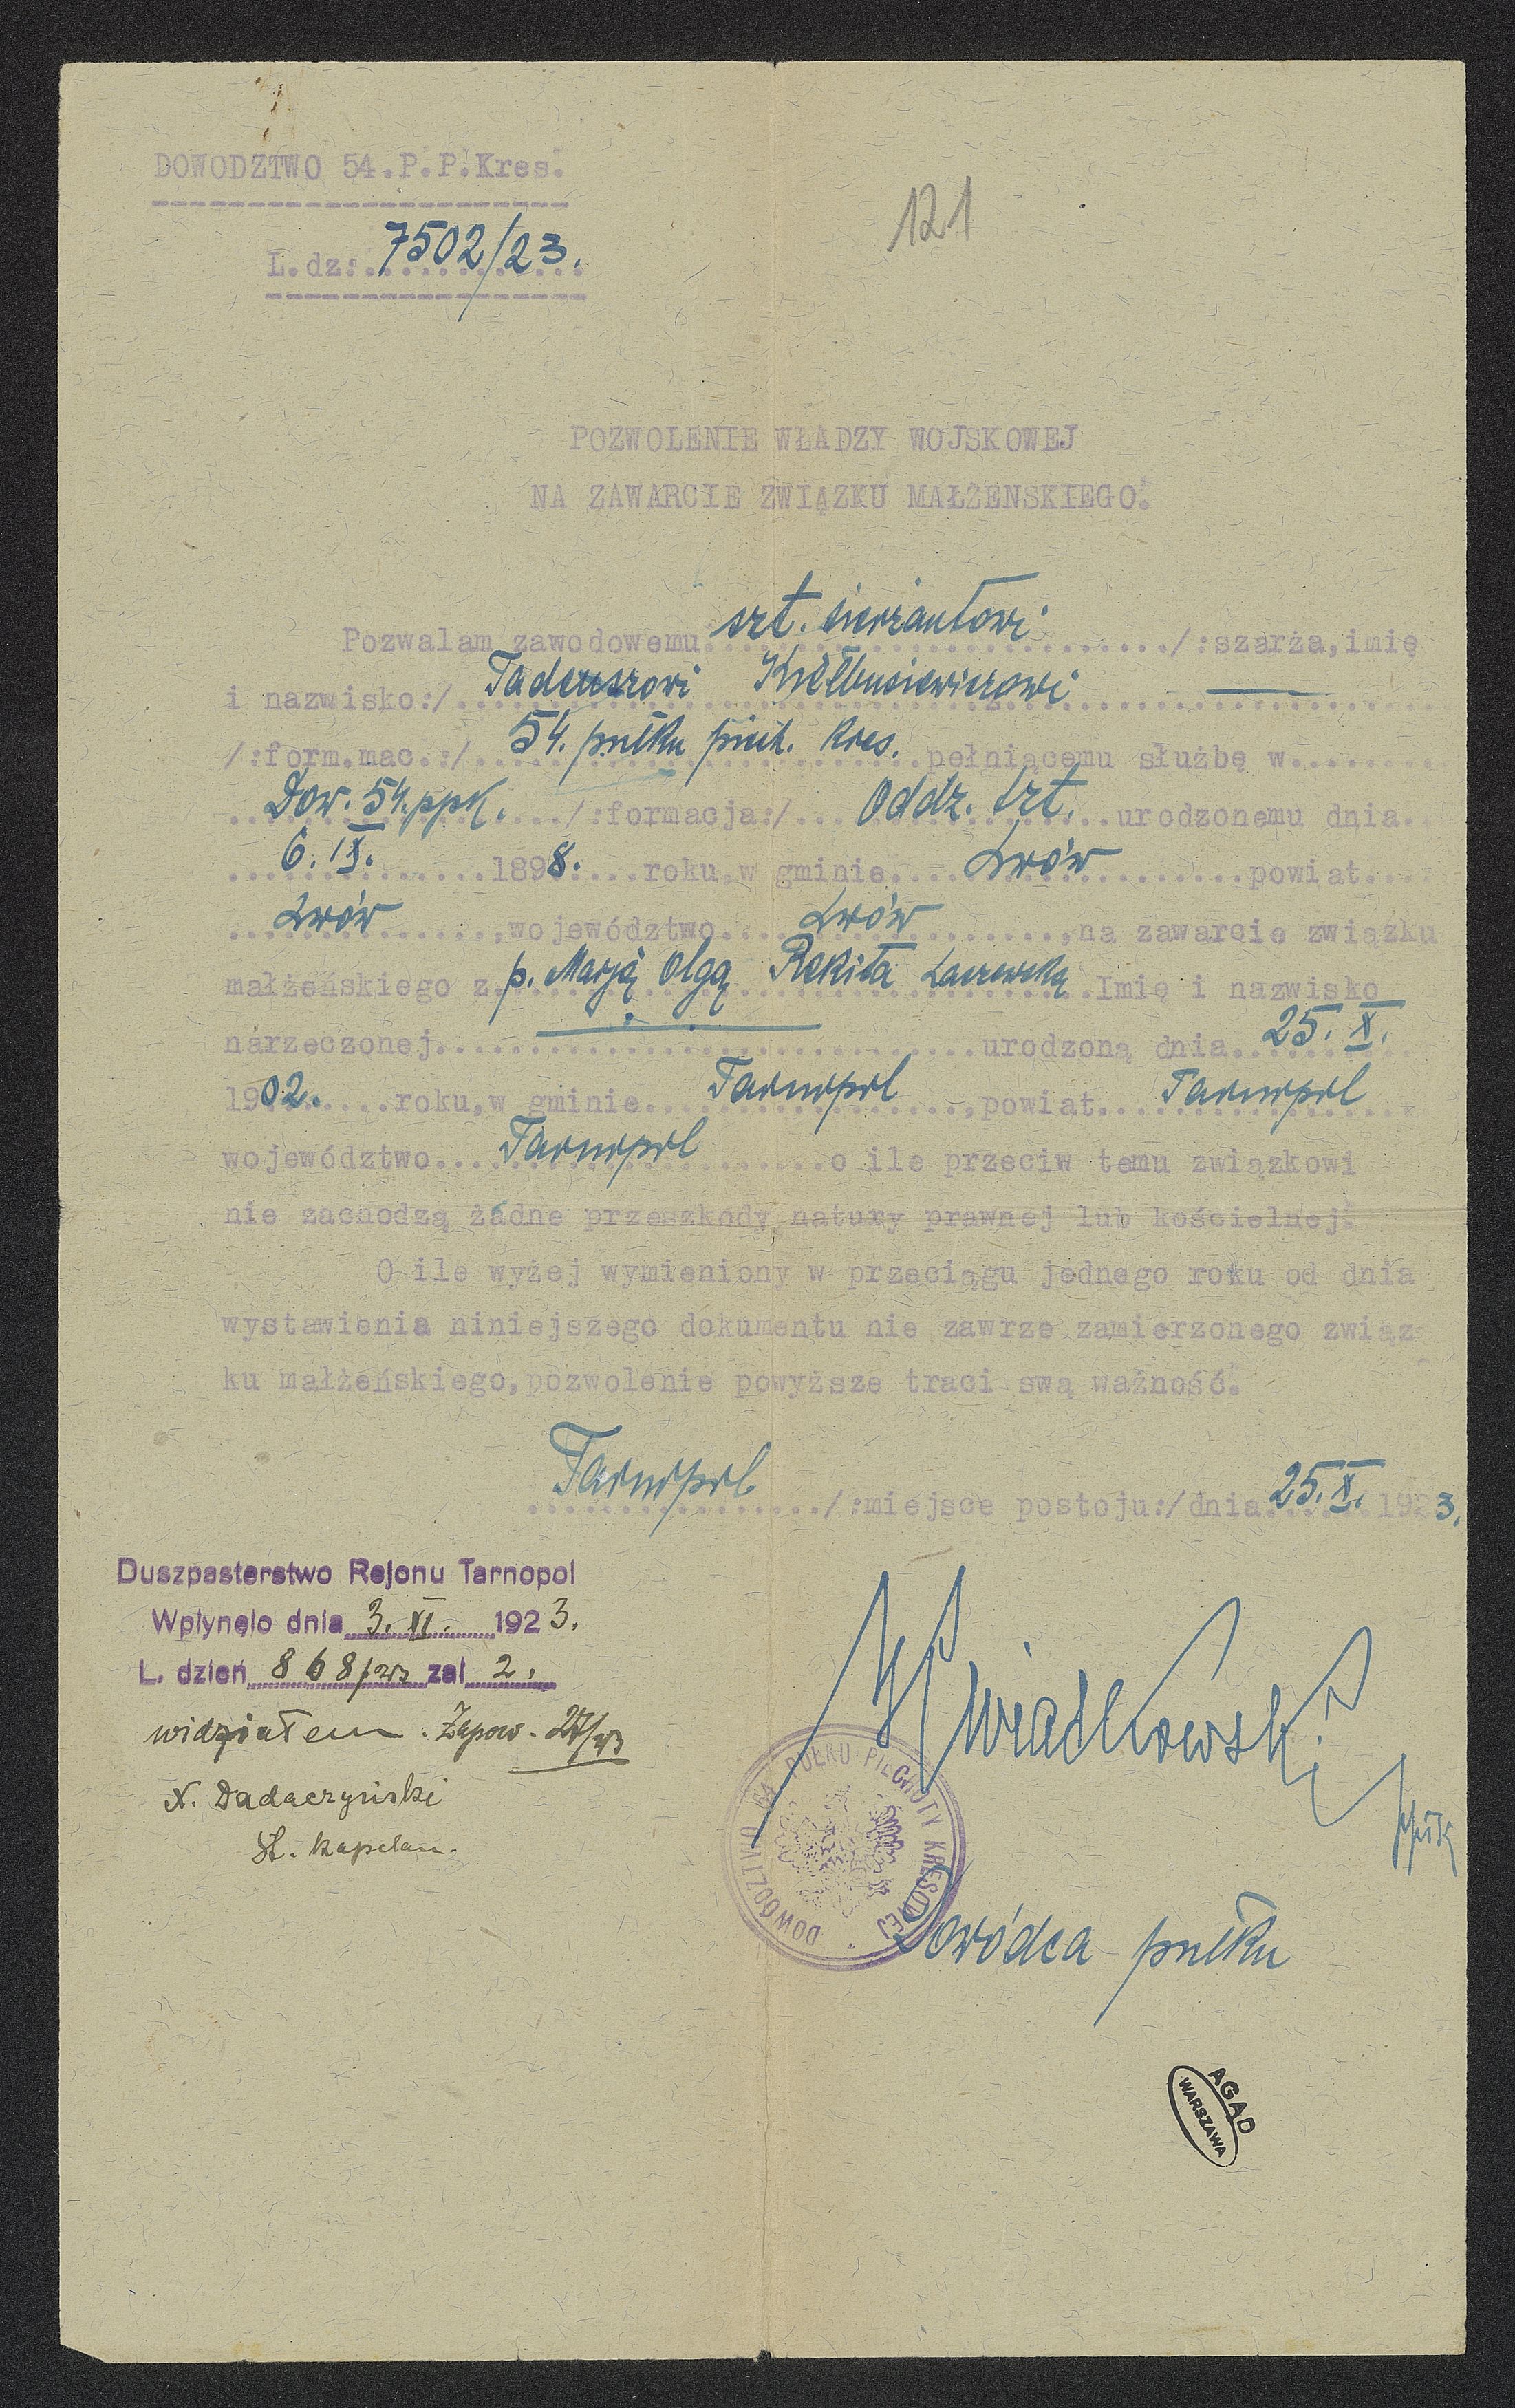 DOWODZTWO 54.P.P.Kres.
121
L.dz: 7502/23.
POZWOLENIE WŁADZY WOJSKOWEJ
NA ZAWARCIE ZWIĄZKU MAŁŻENSKIEGO.
Pozwalam zawodowemu szt. sierżantowi /:szarża,imię
i nazwisko:/ Tadeuszowi
/:form.mac.:/ 54. pułku piech. Kres. pełniącemu służbę w
Dow. 54.ppK. /:formacja:/ Oddz. szt. urodzonemu dnia
6. IX. 1898. roku,w gminie Lwów powiat
Lwów ,województwo Lwów ,na zawarcie związku
małżeńskiego z p. Marją Olgą Rekita Imię i nazwisko
narzeczonej urodzoną dnia 25. X.
1902. roku,w gminie Tarnopol ,powiat Tarnopol
województwo Tarnopol o ile przeciw temu związkowi
nie zachodzą żadne przeszkody natury prawnej lub kościelnej.
O ile wyżej wymieniony w przeciągu jednego roku od dnia
wystawienia niniejszego dokumentu nie zawrze zamierzonego związ
ku małżeńskiego,pozwolenie powyższe traci swą ważność.
Tarnopol /:miejsce postoju:/dnia 25.X. 1923.
Duszpasterstwo Rejonu Tarnopol
Wplynęlo dnia 3. XI. 1923.
L. dzień 868/23 zal 2.
widziałem . Zapow. 27/23
X. Dadaczyński
St. kapelan.
Kwiatkowski
ppłk
DOWÓDZTWO 54 PUŁKU PIECHOTY KRESOWEJ
Dowódca pułku
AGAD
WARSZAWA